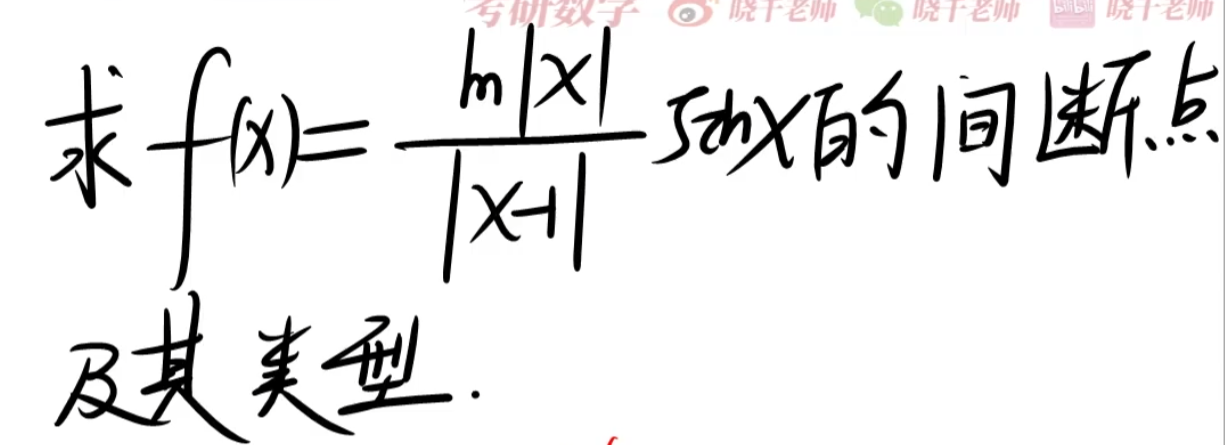 考研数学 晓千老师 晓千老师 bilibili 晓千老师
求 f(x) = ln|x| / |x-1| sinx 的间断点
及其类型.